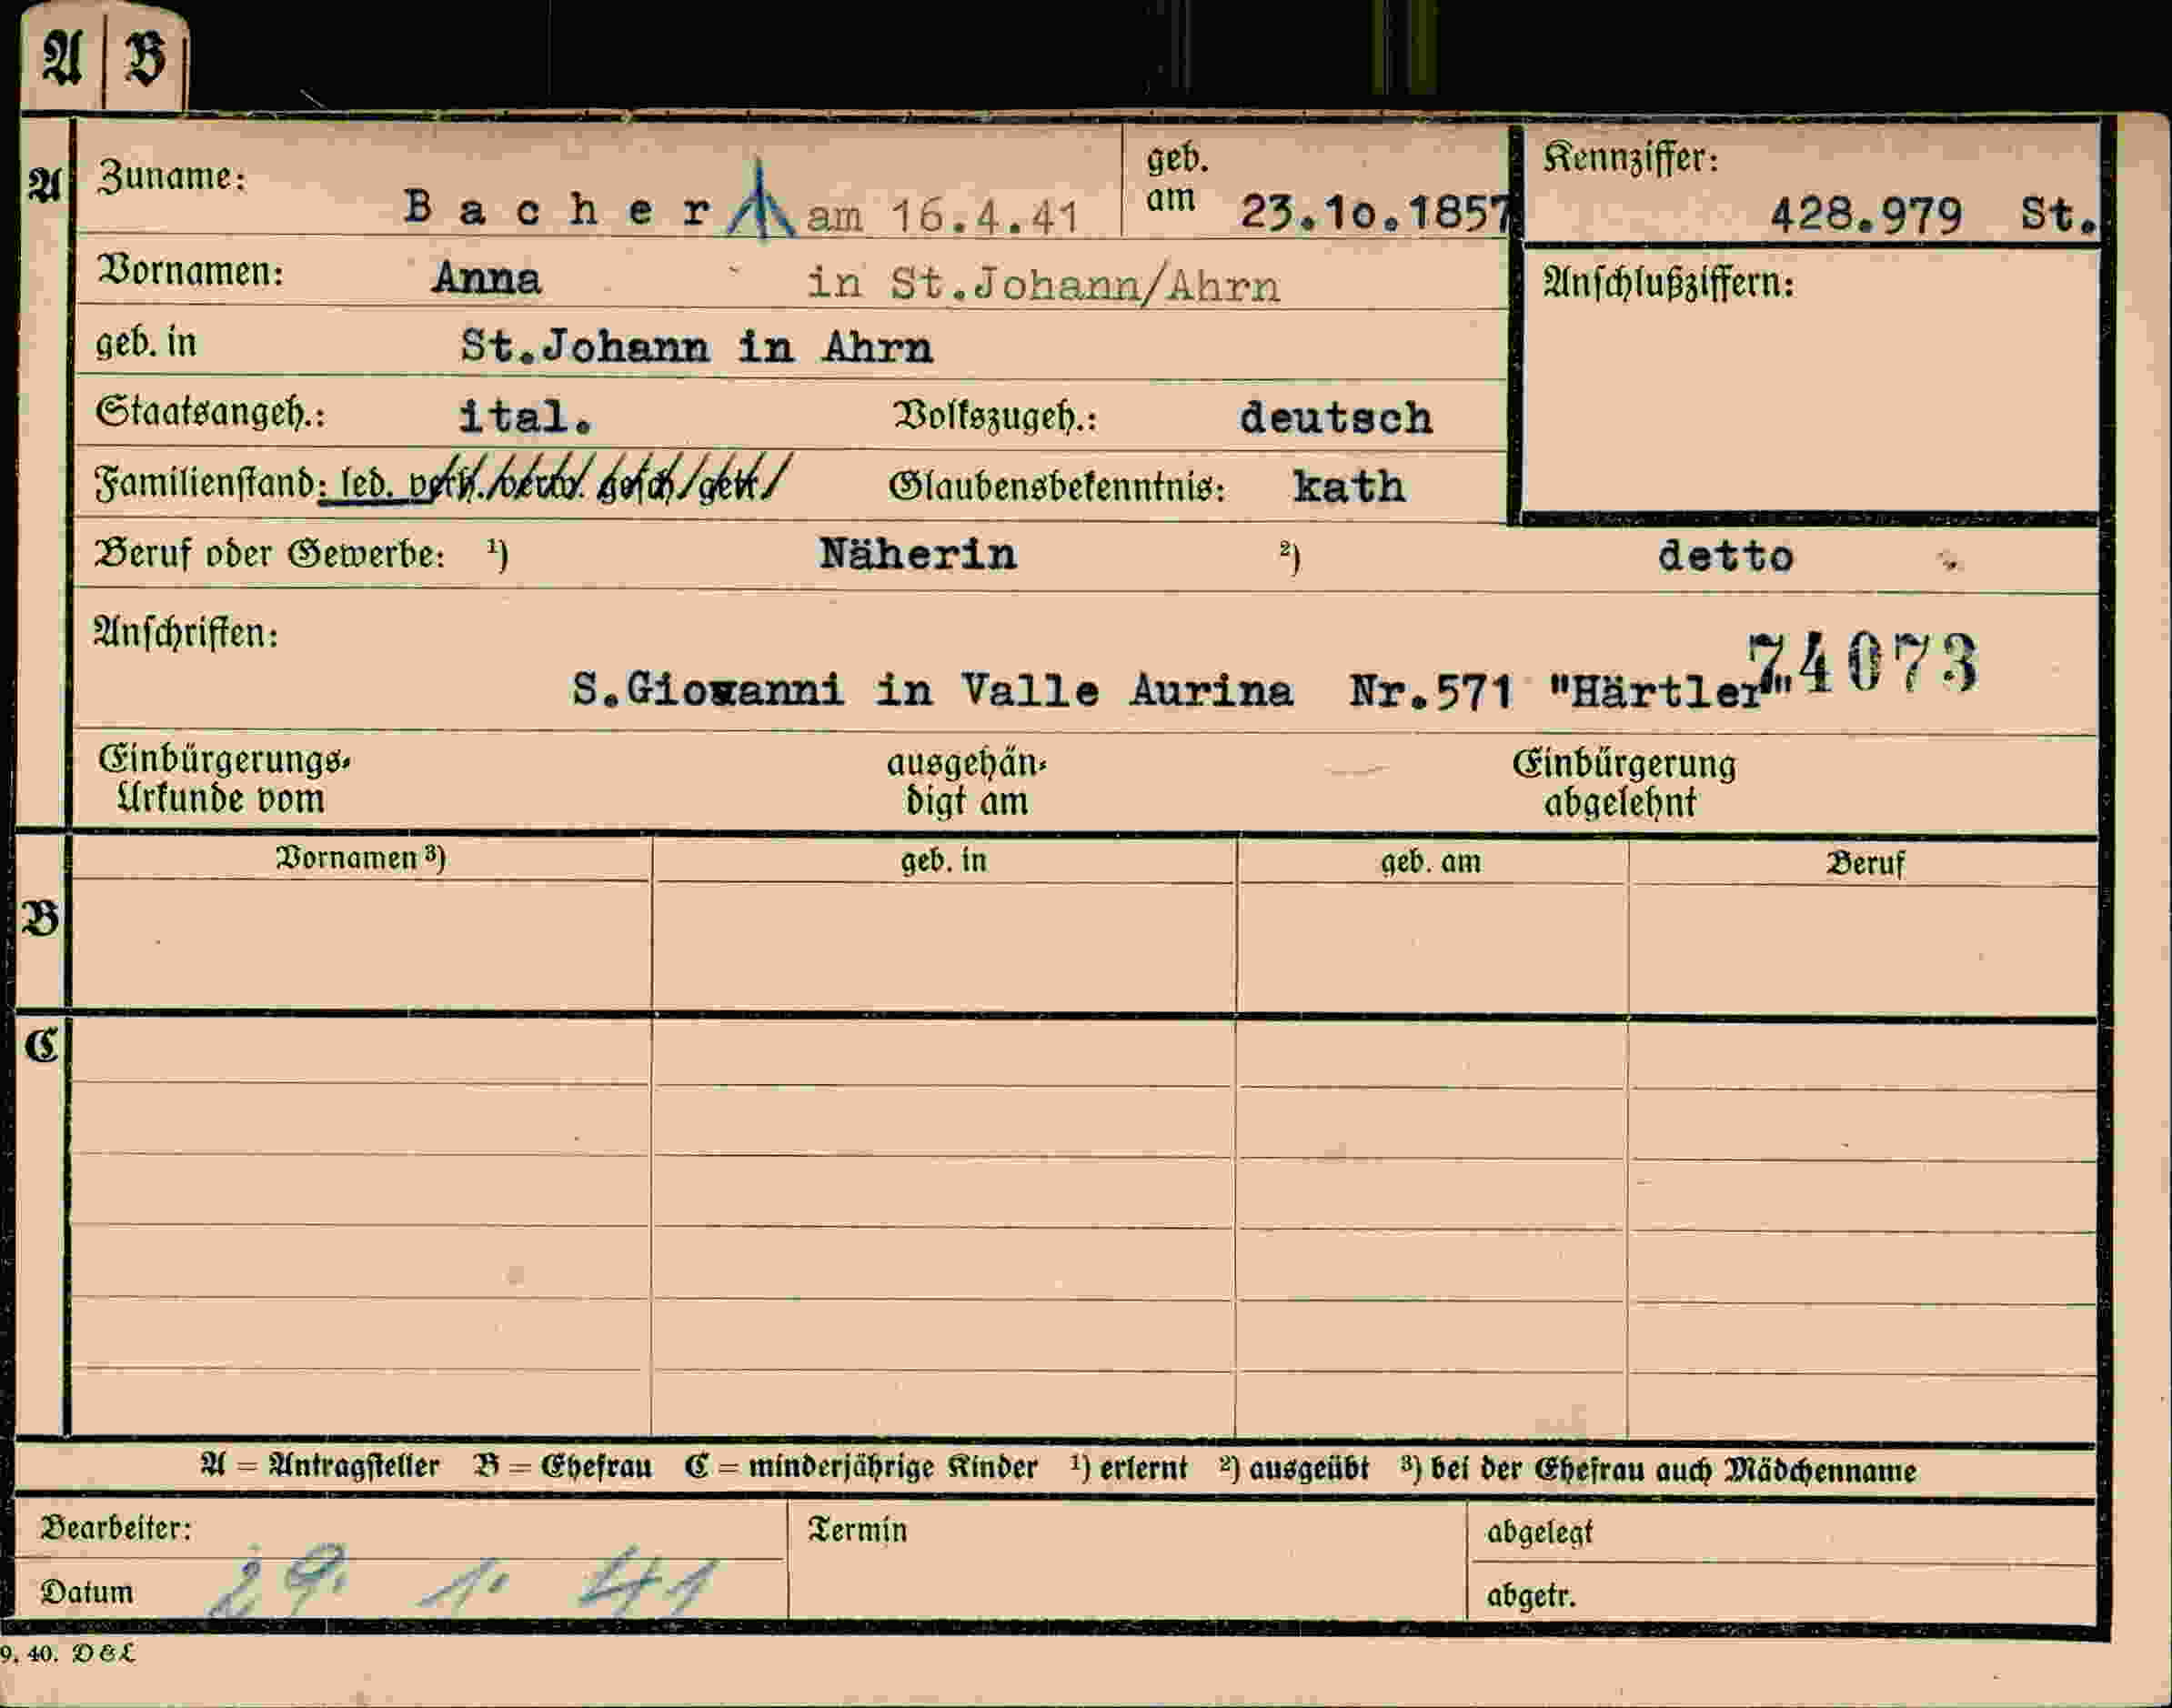 A B
A
Zuname: Bacher am 16.4.41 geb. am 23.10.1857 Kennziffer: 428.979 St.
Vornamen: Anna in St.Johann/Ahrn Anschlußziffern:
geb. in St.Johann in Ahrn
Staatsangeh.: ital. Volkszugeh.: deutsch
Familienstand: led. verh. verw. gesch. getr. Glaubensbekenntnis: kath
Beruf oder Gewerbe: 1) Näherin 2) detto
Anschriften: 74073
S.Giovanni in Valle Aurina Nr.571 "Härtler"
Einbürgerungs- ausgehän- Einbürgerung
Urkunde vom digt am abgelehnt
Vornamen 3) geb. in geb. am Beruf
B
C
A = Antragsteller B = Ehefrau C = minderjährige Kinder 1) erlernt 2) ausgeübt 3) bei der Ehefrau auch Mädchenname
Bearbeiter: Termin abgelegt
Datum 29. 1. 41 abgetr.
9. 40. D & L